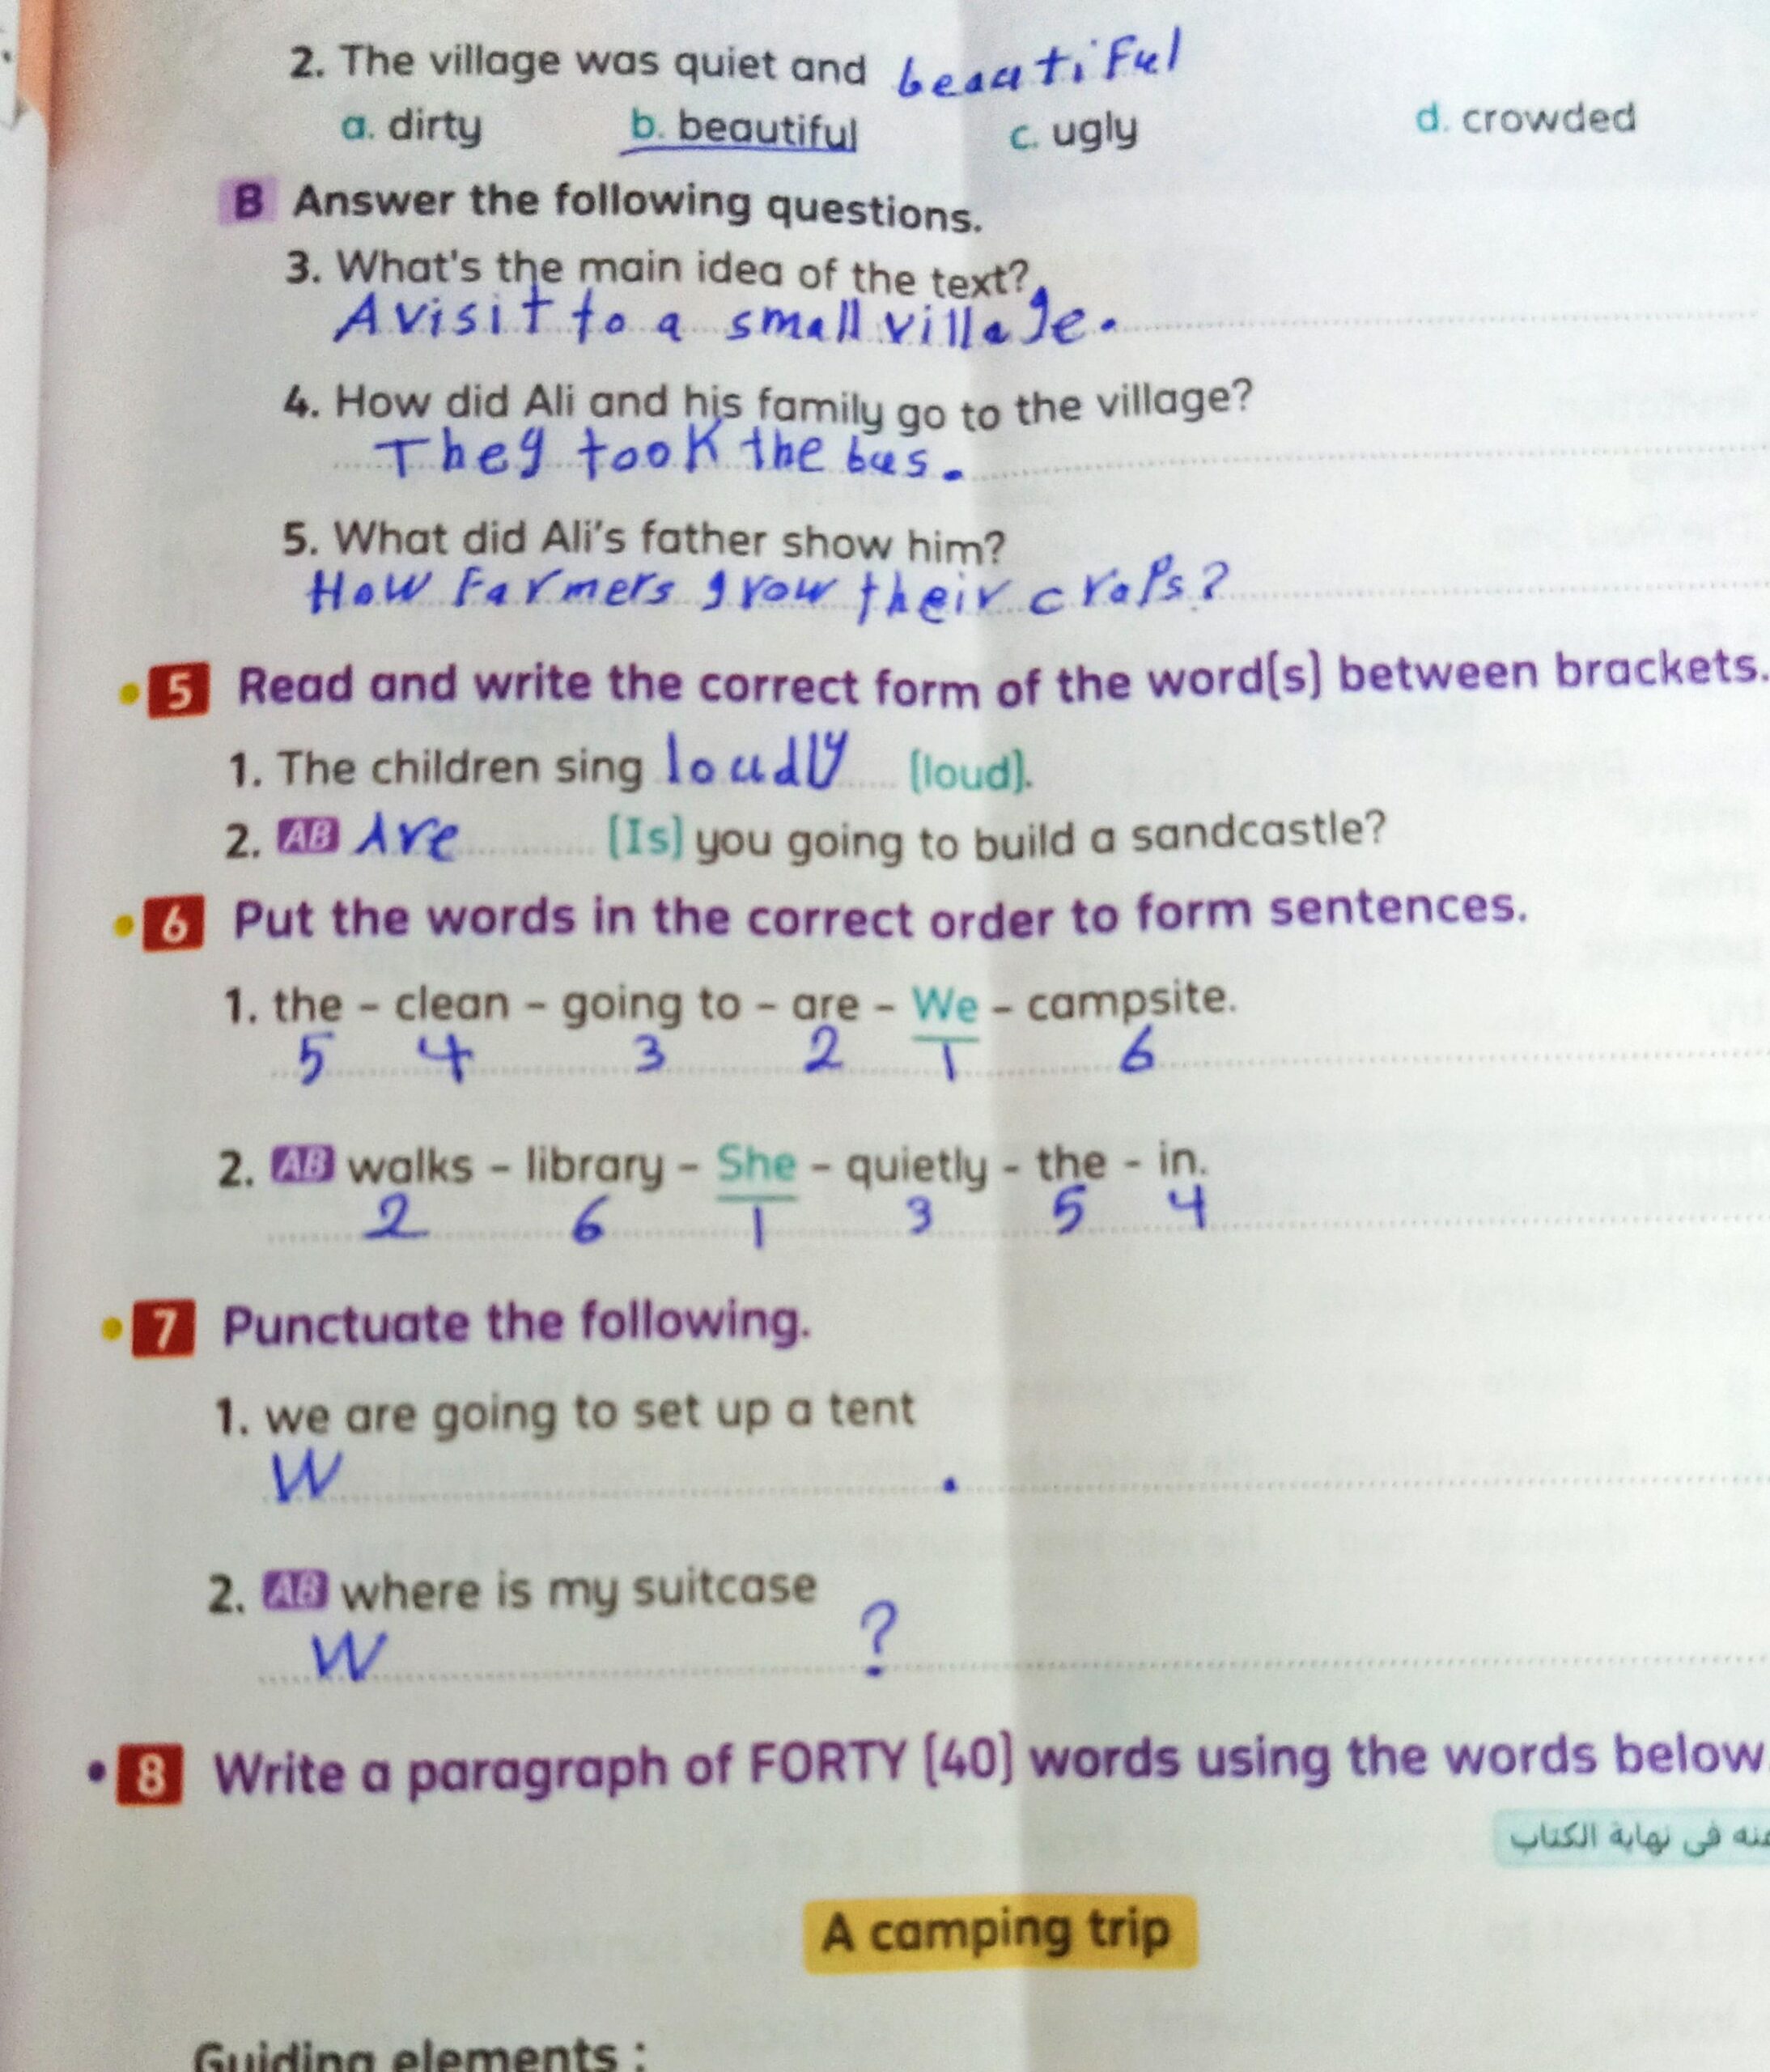 2. The village was quiet and beautiful
a. dirty b. beautiful c. ugly d. crowded
B Answer the following questions.
3. What's the main idea of the text?
A visit to a small village.
4. How did Ali and his family go to the village?
They took the bus.
5. What did Ali's father show him?
How Farmers grow their crops?
5 Read and write the correct form of the word(s) between brackets.
1. The children sing loudly (loud).
2. AB Are (Is) you going to build a sandcastle?
6 Put the words in the correct order to form sentences.
1. the – clean – going to – are – We – campsite.
5 4 3 2 1 6
2. AB walks – library – She – quietly - the - in.
2 6 1 3 5 4
7 Punctuate the following.
1. we are going to set up a tent
W .
2. AB where is my suitcase
W ?
8 Write a paragraph of FORTY (40) words using the words below.
فى نهاية الكتاب
A camping trip
Guiding elements :